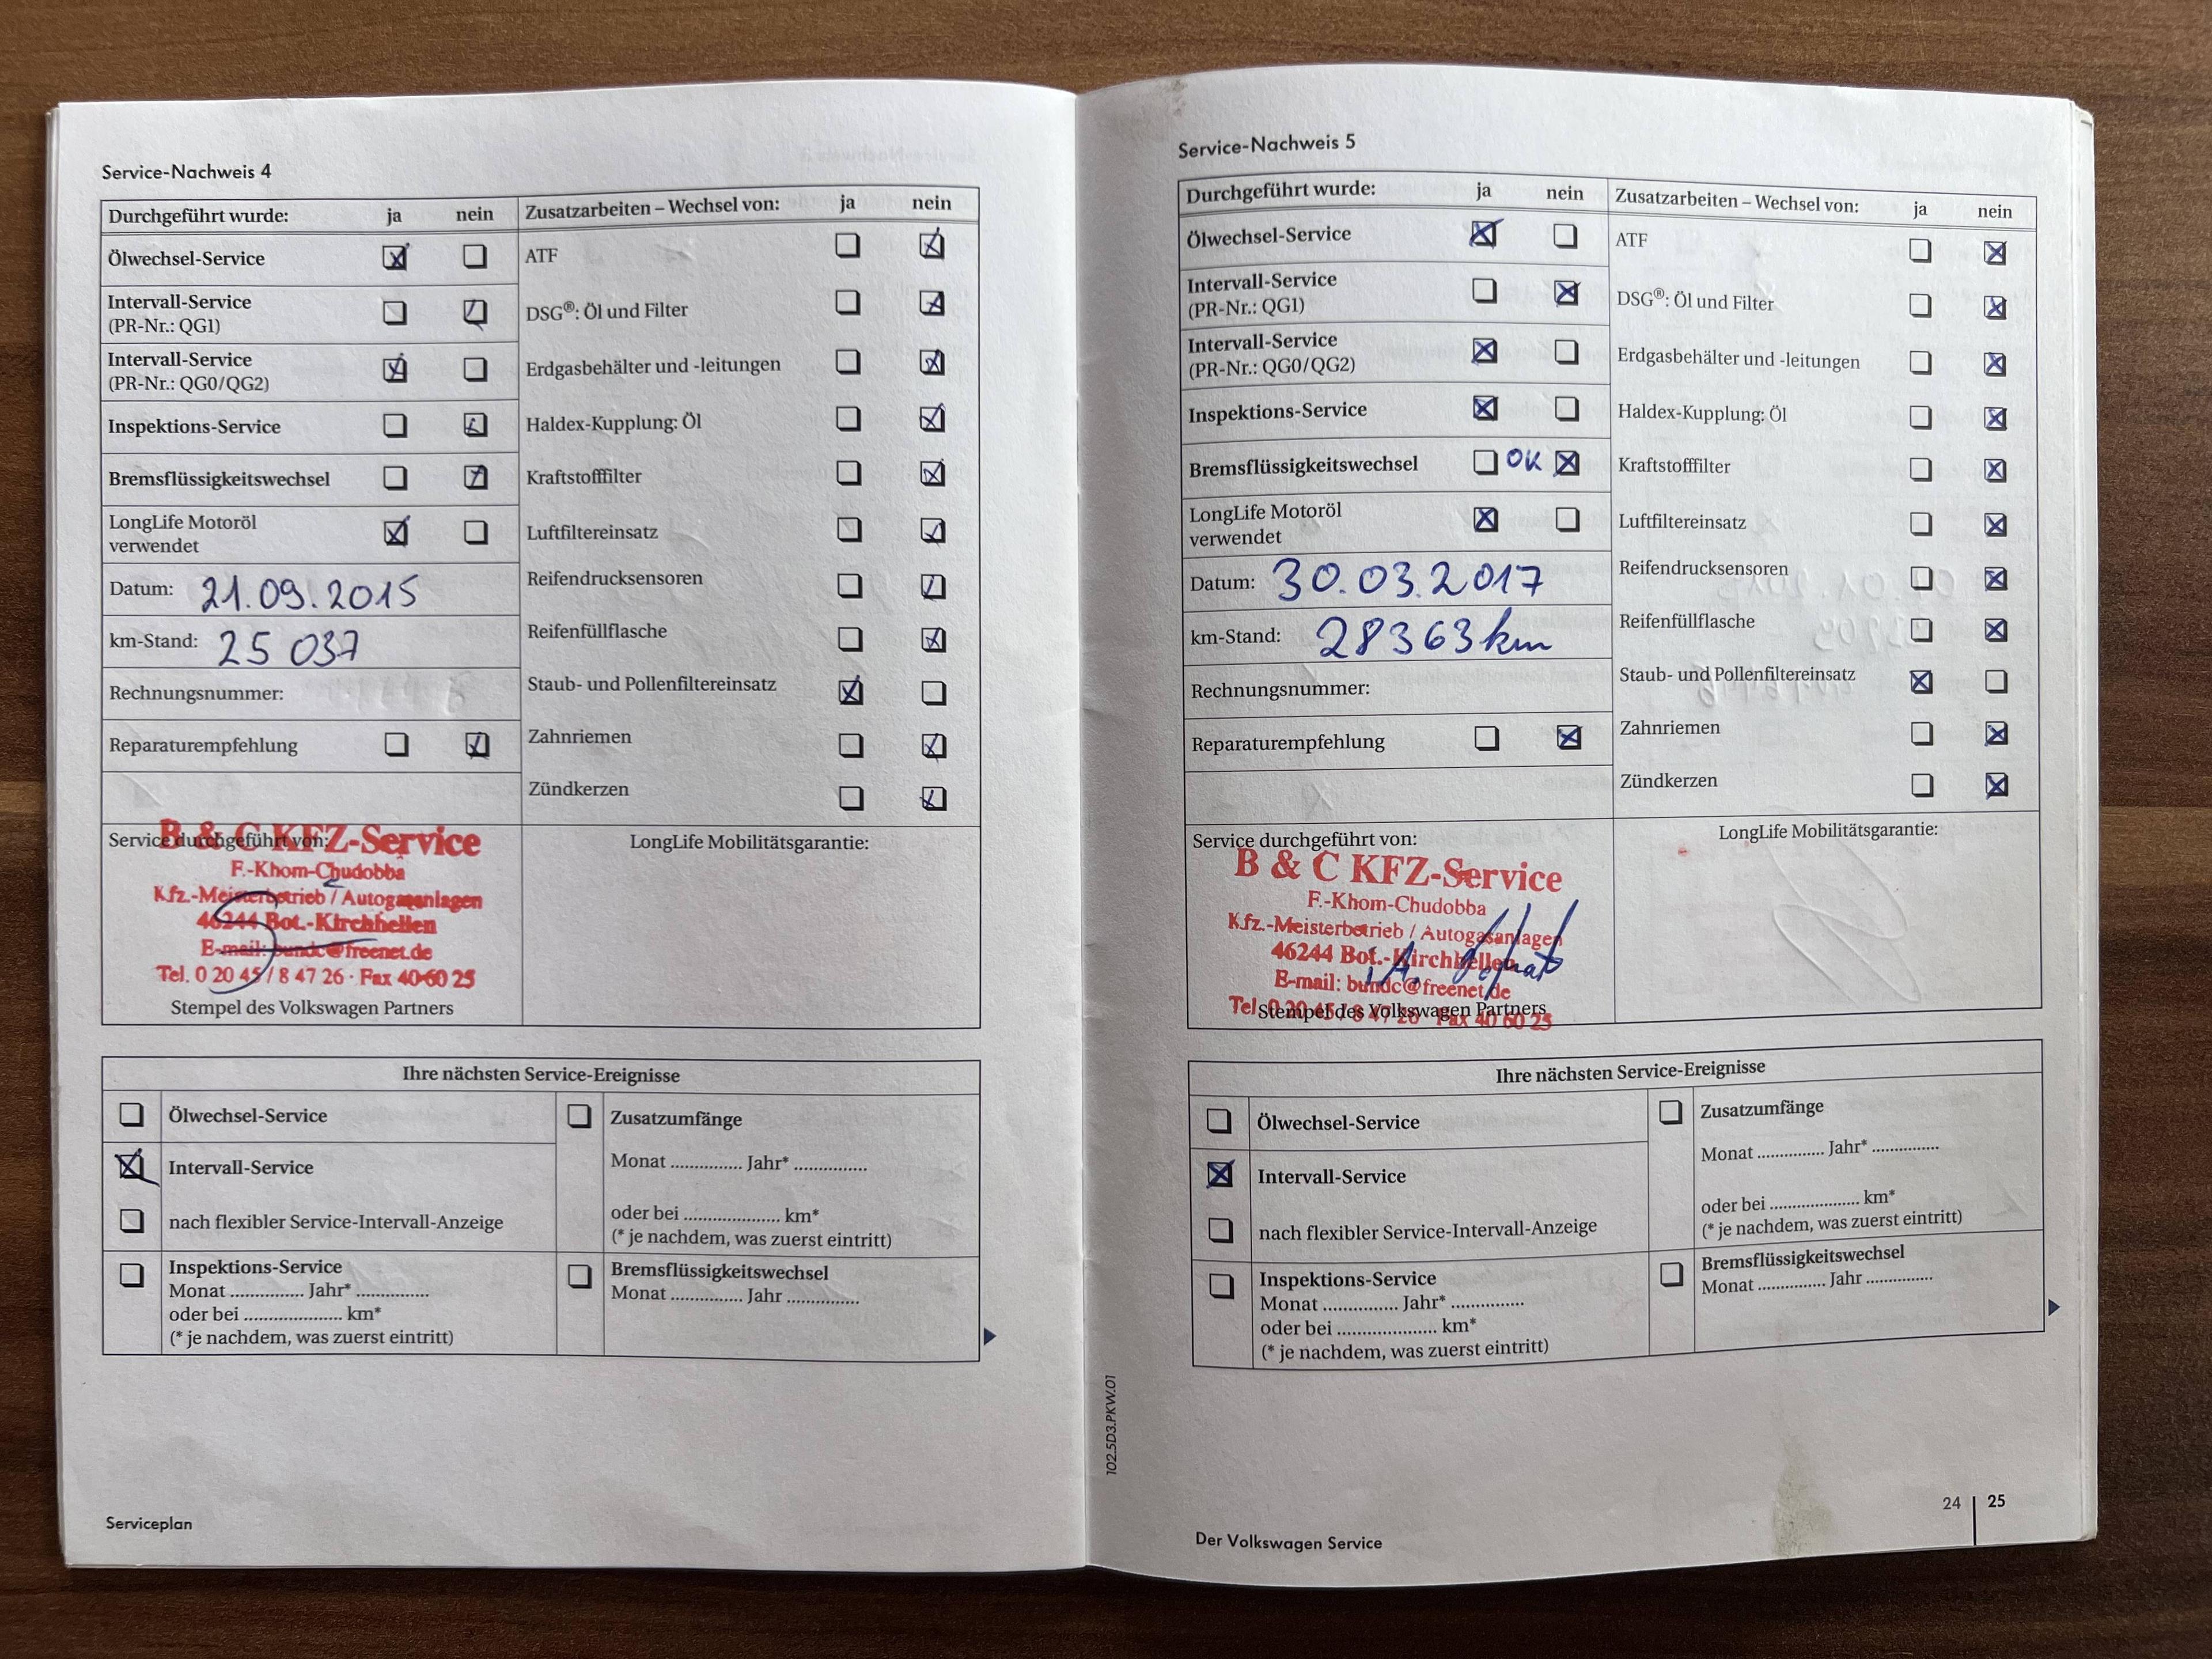 Service-Nachweis 4
Durchgeführt wurde: ja nein
Ölwechsel-Service
Intervall-Service
(PR-Nr.: QG1)
Intervall-Service
(PR-Nr.: QG0/QG2)
Inspektions-Service
Bremsflüssigkeitswechsel
LongLife Motoröl
verwendet
Datum: 21.09.2015
km-Stand: 25 037
Rechnungsnummer:
Reparaturempfehlung
Zusatzarbeiten – Wechsel von: ja nein
ATF
DSG®: Öl und Filter
Erdgasbehälter und -leitungen
Haldex-Kupplung: Öl
Kraftstofffilter
Luftfiltereinsatz
Reifendrucksensoren
Reifenfüllflasche
Staub- und Pollenfiltereinsatz
Zahnriemen
Zündkerzen
Service durchgeführt von:
B & C KFZ-Service
F.-Khom-Chudobba
Kfz.-Meisterbetrieb / Autogasanlagen
46244 Bot.-Kirchhellen
E-mail: bundc@freenet.de
Tel. 0 20 45 / 8 47 26 · Fax 40 60 25
Stempel des Volkswagen Partners
LongLife Mobilitätsgarantie:
Ihre nächsten Service-Ereignisse
Ölwechsel-Service
Intervall-Service
nach flexibler Service-Intervall-Anzeige
Inspektions-Service
Monat .............. Jahr* ..............
oder bei .................... km*
(* je nachdem, was zuerst eintritt)
Zusatzumfänge
Monat .............. Jahr* ..............
oder bei .................... km*
(* je nachdem, was zuerst eintritt)
Bremsflüssigkeitswechsel
Monat .............. Jahr ..............
Serviceplan
Service-Nachweis 5
Durchgeführt wurde: ja nein
Ölwechsel-Service
Intervall-Service
(PR-Nr.: QG1)
Intervall-Service
(PR-Nr.: QG0/QG2)
Inspektions-Service
Bremsflüssigkeitswechsel OK
LongLife Motoröl
verwendet
Datum: 30.03.2017
km-Stand: 28363 km
Rechnungsnummer:
Reparaturempfehlung
Zusatzarbeiten – Wechsel von: ja nein
ATF
DSG®: Öl und Filter
Erdgasbehälter und -leitungen
Haldex-Kupplung: Öl
Kraftstofffilter
Luftfiltereinsatz
Reifendrucksensoren
Reifenfüllflasche
Staub- und Pollenfiltereinsatz
Zahnriemen
Zündkerzen
Service durchgeführt von:
B & C KFZ-Service
F.-Khom-Chudobba
Kfz.-Meisterbetrieb / Autogasanlagen
46244 Bot.-Kirchhellen
E-mail: bundc@freenet.de
Tel. 0 20 45 / 8 47 26 Fax 40 60 25
Stempel des Volkswagen Partners
LongLife Mobilitätsgarantie:
Ihre nächsten Service-Ereignisse
Ölwechsel-Service
Intervall-Service
nach flexibler Service-Intervall-Anzeige
Inspektions-Service
Monat .............. Jahr* ..............
oder bei .................... km*
(* je nachdem, was zuerst eintritt)
Zusatzumfänge
Monat .............. Jahr* ..............
oder bei .................. km*
(* je nachdem, was zuerst eintritt)
Bremsflüssigkeitswechsel
Monat .............. Jahr ..............
102.5D3.PKW.01
Der Volkswagen Service
24 | 25